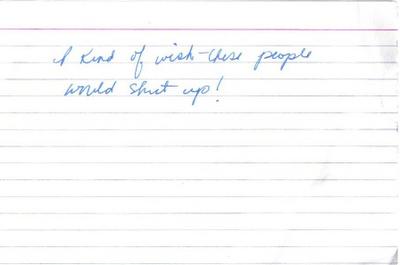 I kind of wish these people
would shut up!